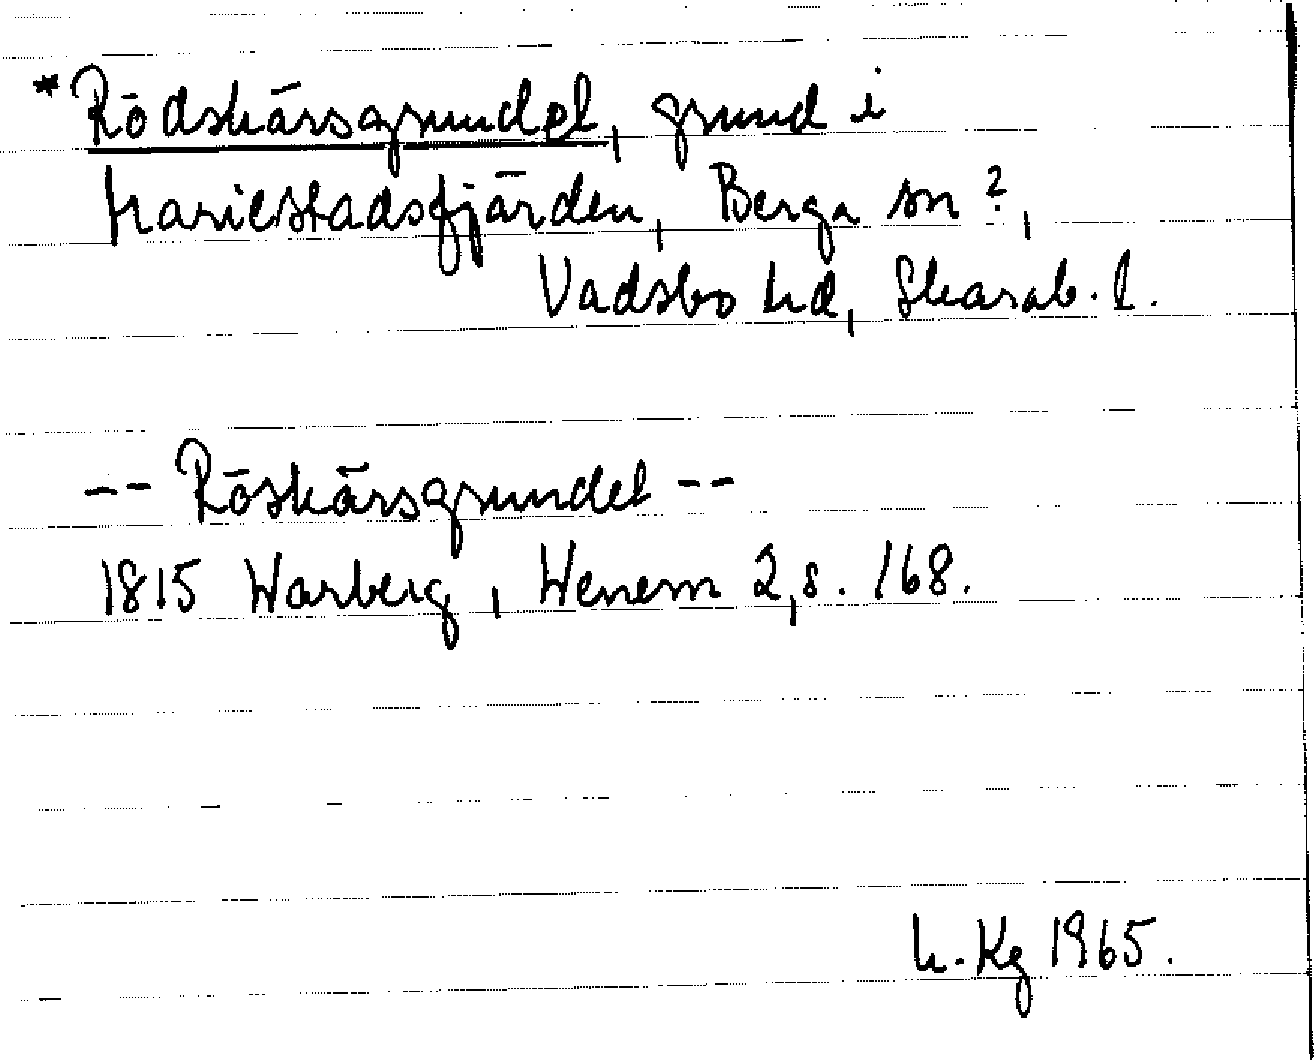 *Rödskärsgrundet, grund i
Mariestadsfjärden, Berga sn?,
Vadsbo hd, Skarab. l.
-- Röskärsgrundet --
1815 Warberg, Wenern 2, s. 168.
h. Kg 1965.